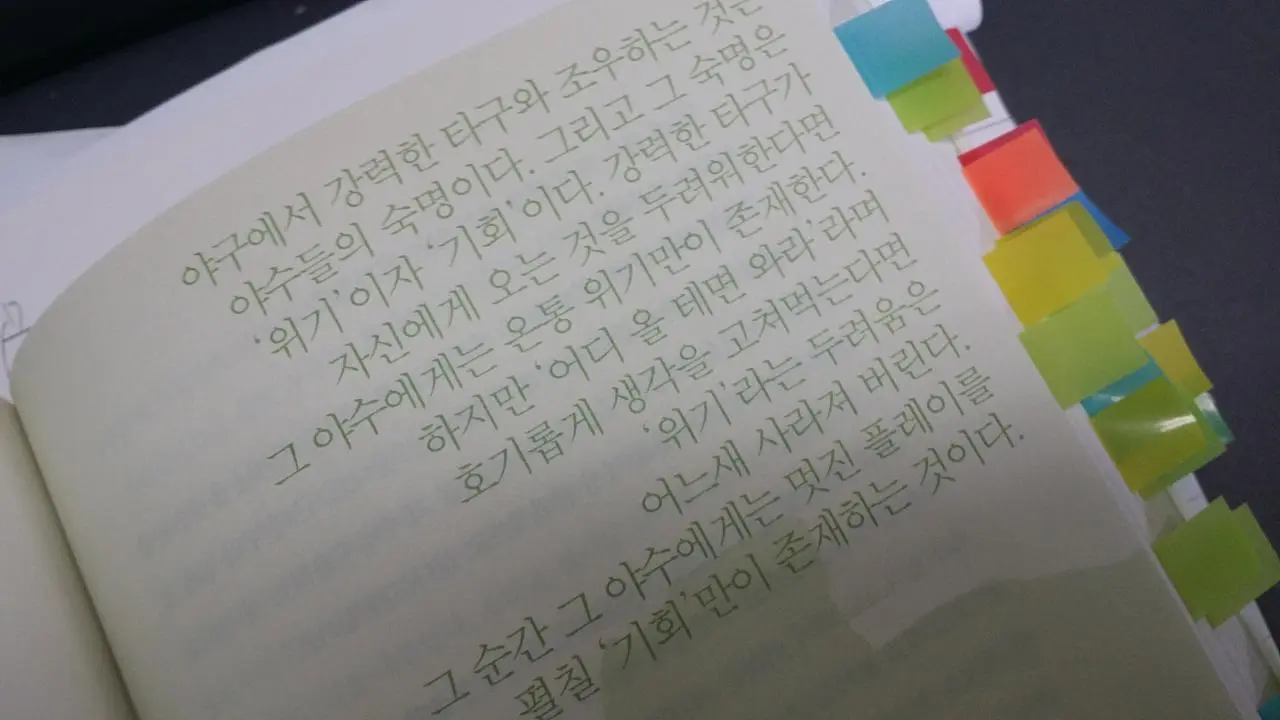 야구에서 강력한 타구와 조우하는 것은
야수들의 숙명이다. 그리고 그 숙명은
‘위기’이자 ‘기회’이다. 강력한 타구가
자신에게 오는 것을 두려워한다면
그 야수에게는 온통 위기만이 존재한다.
하지만 ‘어디 올 테면 와라’라며
호기롭게 생각을 고쳐먹는다면
‘위기’라는 두려움은
어느새 사라져 버린다.
그 순간 그 야수에게는 멋진 플레이를
펼칠 ‘기회’만이 존재하는 것이다.